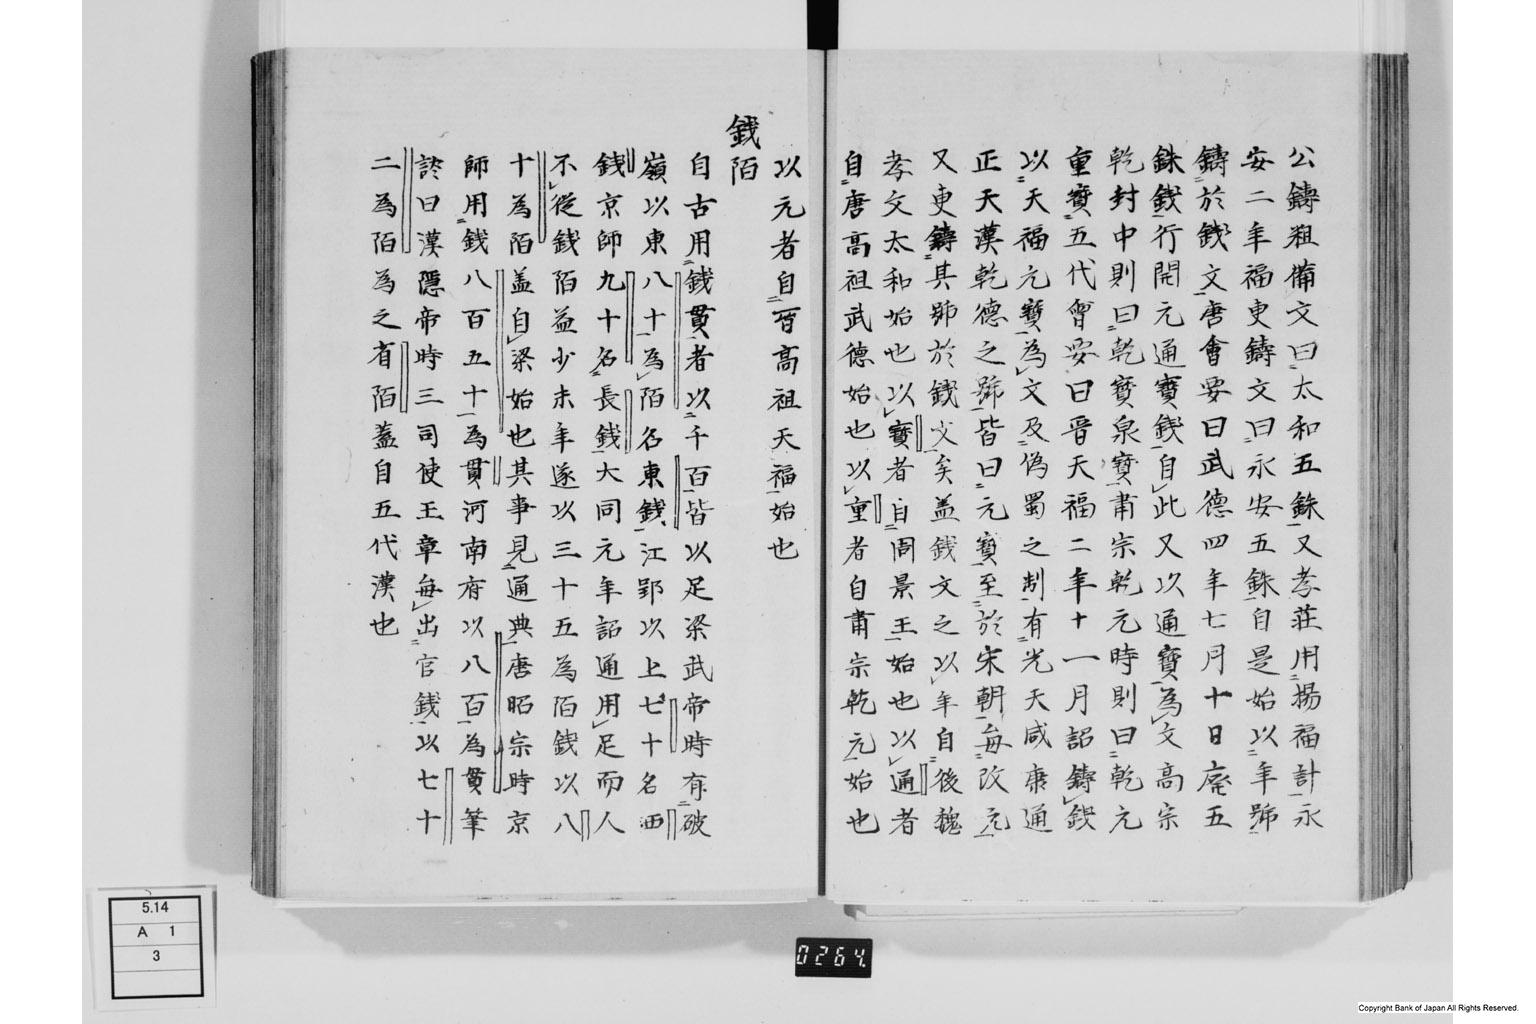 公鑄粗備文曰太和五銖又孝莊用揚福計永
安二年福更鑄文曰永安五銖自是始以年號
鑄於錢文唐會要曰武德四年七月十日廢五
銖錢行開元通寶錢自此又以通寶為文高宗
乾封中則曰乾寶泉寶肅宗乾元時則曰乾元
重寶五代會要曰晉天福二年十一月詔鑄錢
以天福元寶為文及偽蜀之制有光天咸康通
正天漢乾德之號皆曰元寶至於宋朝每改元
又更鑄其號於錢文矣蓋錢文之以年自後魏
孝文太和始也以寶者自周景王始也以通者
自唐高祖武德始也以重者自肅宗乾元始也
以元者自晉高祖天福始也
錢陌
自古用錢貫者以千百皆以足梁武帝時有破
嶺以東八十為陌名東錢江郢以上七十名西
錢京師九十名長錢大同元年詔通用足而人
不從錢陌益少末年遂以三十五為陌錢以八
十為陌蓋自梁始也其事見通典唐昭宗時京
師用錢八百五十為貫河南府以八百為貫筆
談曰漢隱帝時三司使王章每出官錢以七十
二為陌為之省陌蓋自五代漢也
5.14
A 1
3
0264
Copyright Bank of Japan All Rights Reserved.